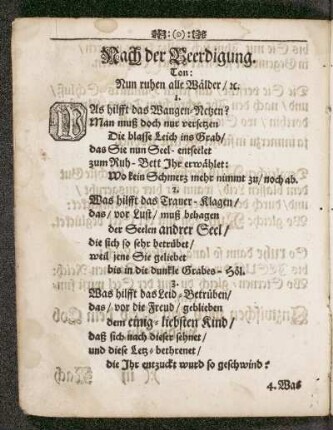 :(o):
Nach der Beerdigung.
Ton:
Nun ruhen alle Wälder/ ꝛc.
1.
WAs hilfft das Wangen-Netzen?
Man muß doch nur versetzen
Die blasse Leich ins Grab/
das Sie nun Seel-entseelet
zum Ruh-Bett Ihr erwählet:
Wo kein Schmertz mehr nimmt zu/ noch ab.
2.
Was hilfft das Trauer-Klagen/
das/ vor Lust/ muß behagen
der Seelen andrer Seel/
die sich so sehr betrübet/
weil jene Sie geliebet
bis in die dunkle Grabes-Höl.
3.
Was hilfft das Leid-Betrüben/
das/ vor die Freud/ geblieben
dem einig-liebsten Kind/
daß sich nach dieser sehnet/
und diese Letz-bethrenet/
die Ihr entzuckt wurd so geschwind?
4. Was